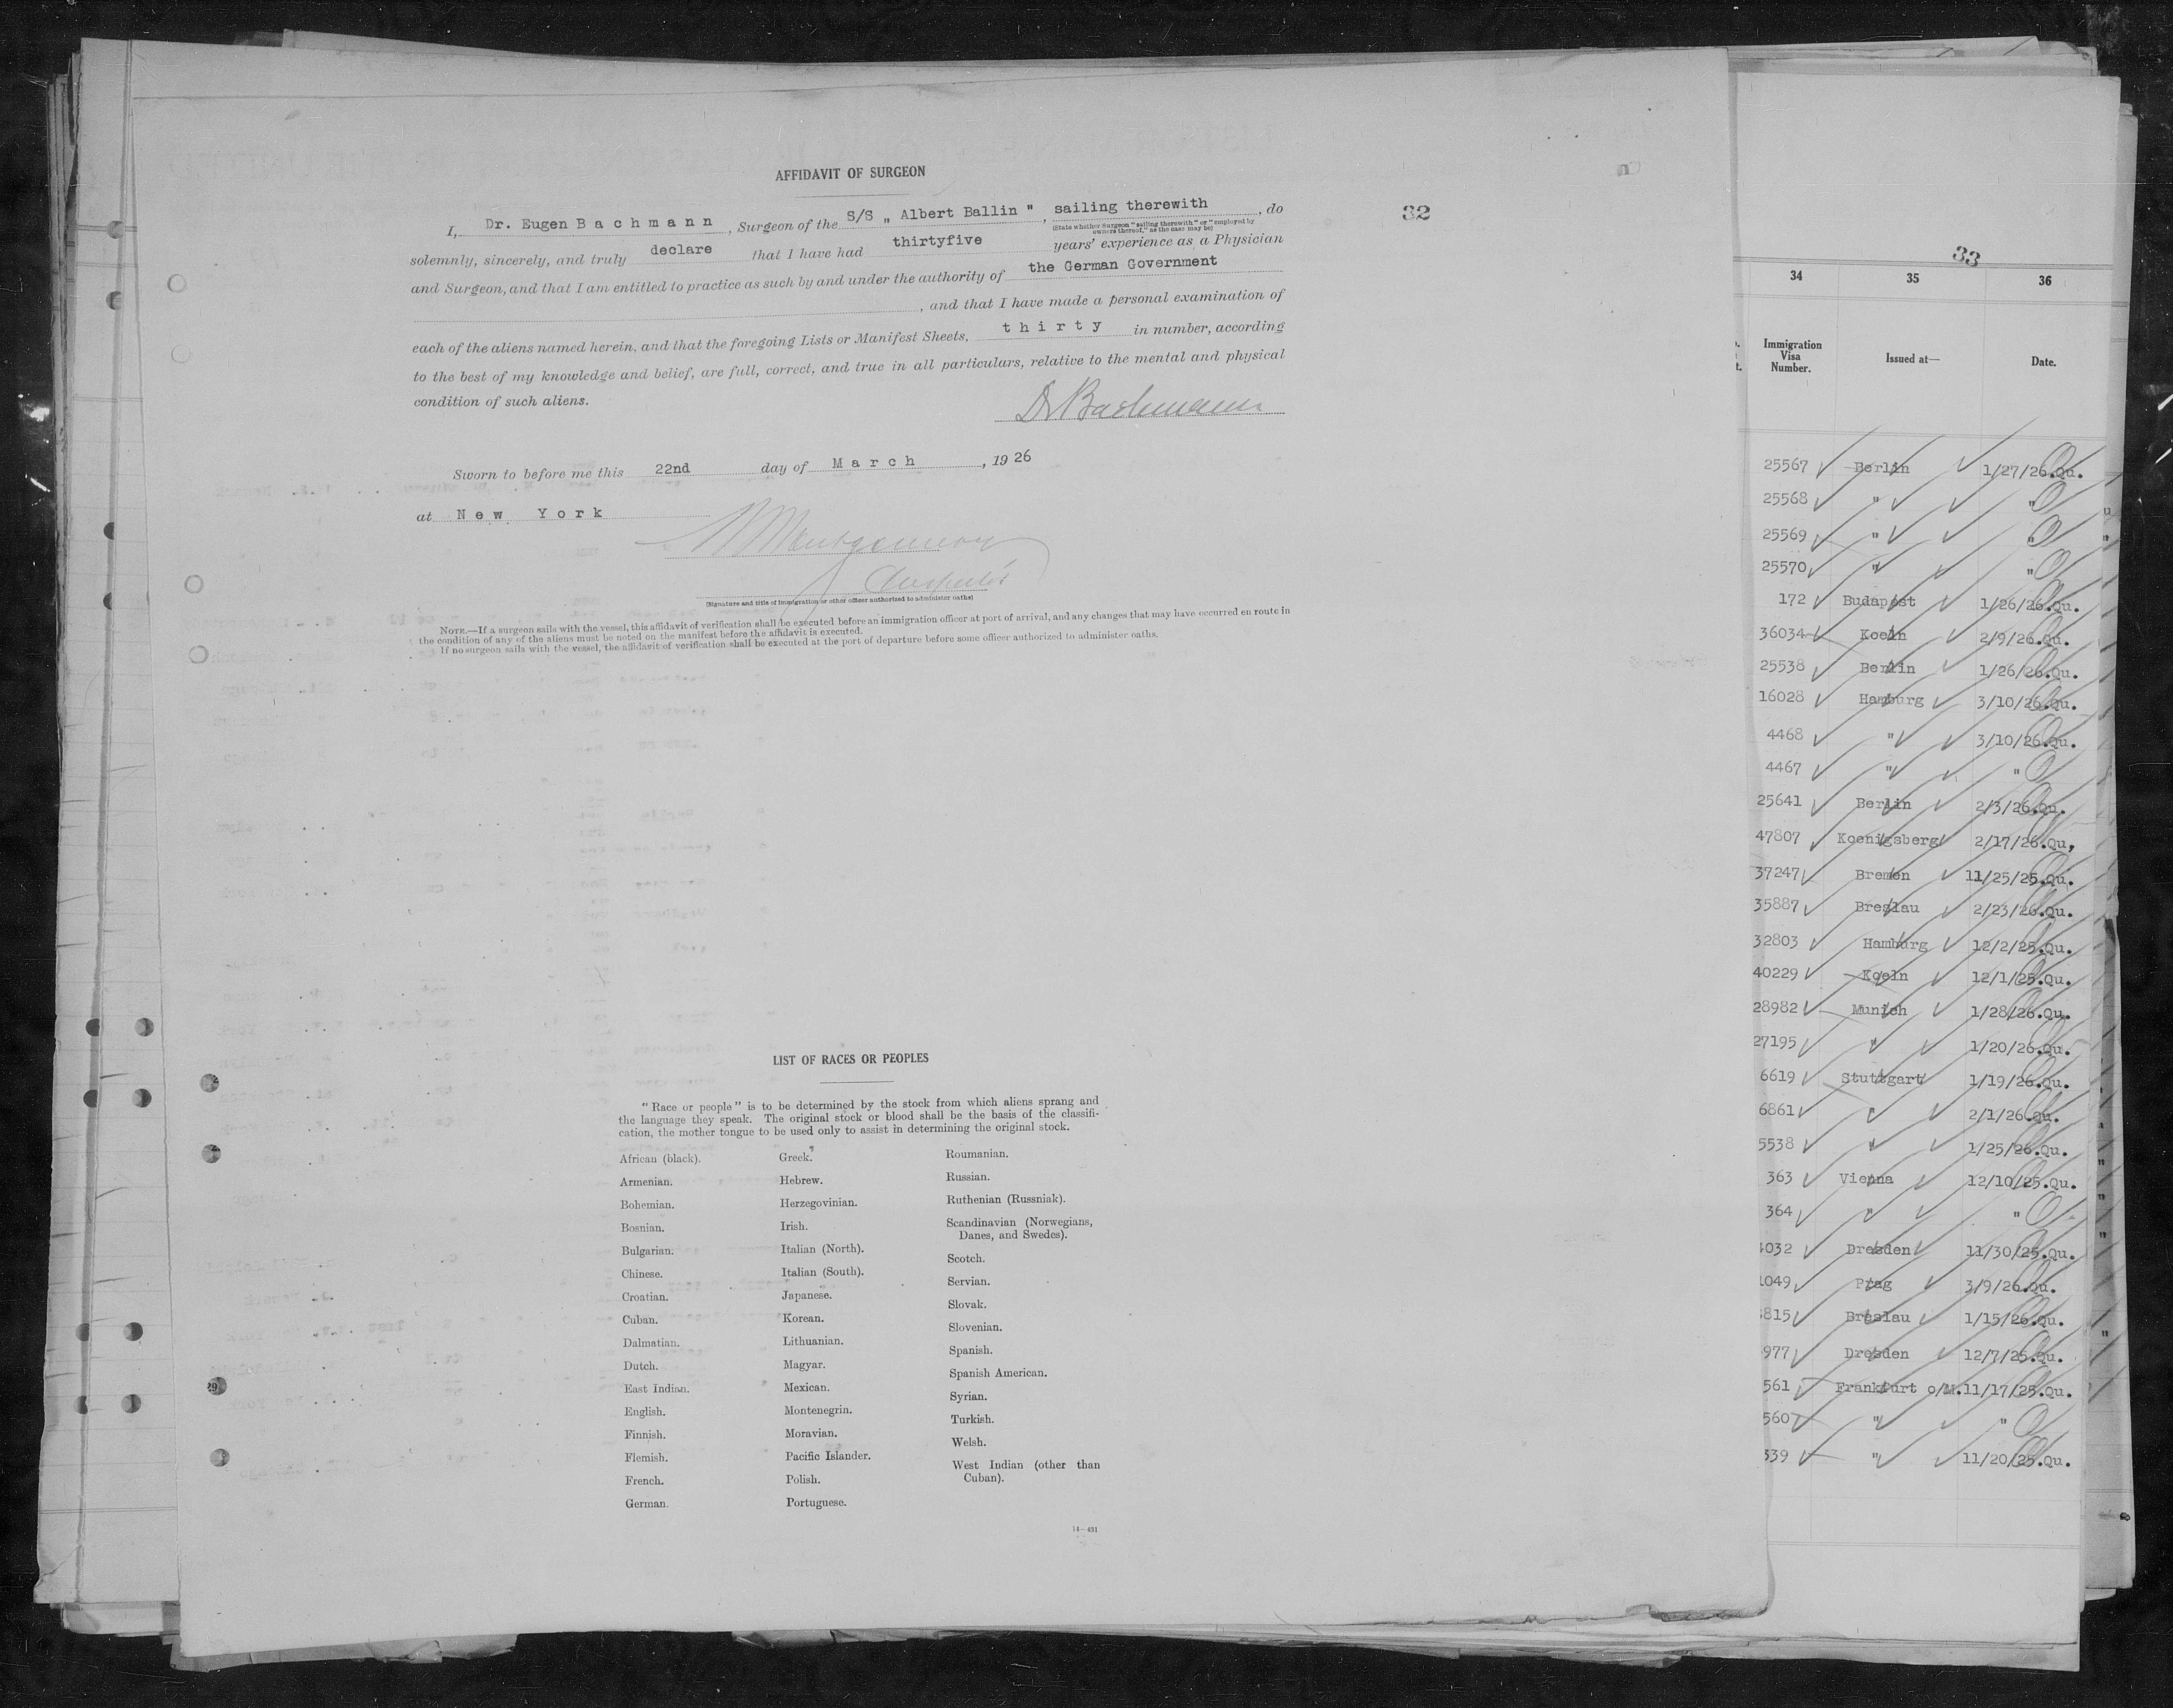 AFFIDAVIT OF SURGEON
32
I, Dr. Eugen B a c h m a n n , Surgeon of the S/S „ Albert Ballin " , sailing therewith , do
(State whether Surgeon "sailing therewith" or "employed by owners thereof," as the case may be)
solemnly, sincerely, and truly declare that I have had thirtyfive years' experience as a Physician
and Surgeon, and that I am entitled to practice as such by and under the authority of the German Government
, and that I have made a personal examination of
each of the aliens named herein, and that the foregoing Lists or Manifest Sheets, t h i r t y in number, according
to the best of my knowledge and belief, are full, correct, and true in all particulars, relative to the mental and physical
condition of such aliens.
Dr Bachmann
Sworn to before me this 22nd day of M a r c h , 19 26
at N e w Y o r k
Montgomery
(Signature and title of immigration or other officer authorized to administer oaths)
NOTE.—If a surgeon sails with the vessel, this affidavit of verification shall be executed before an immigration officer at port of arrival, and any changes that may have occurred en route in
the condition of any of the aliens must be noted on the manifest before the affidavit is executed.
If no surgeon sails with the vessel, the affidavit of verification shall be executed at the port of departure before some officer authorized to administer oaths.
LIST OF RACES OR PEOPLES
"Race or people" is to be determined by the stock from which aliens sprang and
the language they speak. The original stock or blood shall be the basis of the classifi-
cation, the mother tongue to be used only to assist in determining the original stock.
African (black).
Armenian.
Bohemian.
Bosnian.
Bulgarian.
Chinese.
Croatian.
Cuban.
Dalmatian.
Dutch.
East Indian.
English.
Finnish.
Flemish.
French.
German.
Greek.
Hebrew.
Herzegovinian.
Irish.
Italian (North).
Italian (South).
Japanese.
Korean.
Lithuanian.
Magyar.
Mexican.
Montenegrin.
Moravian.
Pacific Islander.
Polish.
Portuguese.
Roumanian.
Russian.
Ruthenian (Russniak).
Scandinavian (Norwegians,
Danes, and Swedes).
Scotch.
Servian.
Slovak.
Slovenian.
Spanish.
Spanish American.
Syrian.
Turkish.
Welsh.
West Indian (other than
Cuban).
14—431
33
34 35 36
Immigration Visa Number. Issued at— Date.
25567 Berlin 1/27/26.Qu.
25568 " "
25569 " "
25570 " "
172 Budapest 1/26/26.Qu.
36034 Koeln 2/9/26.Qu.
25538 Berlin 1/26/26.Qu.
16028 Hamburg 3/10/26.Qu.
4468 " 3/10/26.Qu.
4467 " "
25641 Berlin 2/3/26.Qu.
47807 Koenigsberg 2/17/26.Qu,
37247 Bremen 11/25/25.Qu.
35887 Breslau 2/23/26.Qu.
32803 Hamburg 12/2/25.Qu.
40229 Koeln 12/1/25.Qu.
28982 Munich 1/28/26.Qu.
27195 " 1/20/26.Qu.
6619 Stuttgart 1/19/26.Qu.
6861 " 2/1/26.Qu.
5538 " 1/25/26.Qu.
363 Vienna 12/10/25.Qu.
364 " "
4032 Dresden 11/30/25.Qu.
1049 Prag 3/9/26.Qu.
815 Breslau 1/15/26.Qu.
977 Dresden 12/7/25.Qu.
561 Frankfurt o/M. 11/17/25.Qu.
560 " "
339 " 11/20/25.Qu.